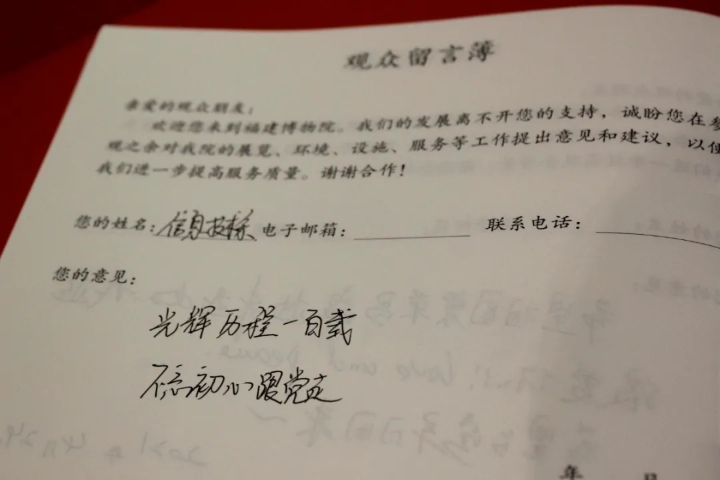 观众留言薄
亲爱的观众朋友：
欢迎您来到福建博物院。我们的发展离不开您的支持，诚盼您在参
观之余对我院的展览、环境、设施、服务等工作提出意见和建议，以使
我们进一步提高服务质量。谢谢合作！
您的姓名：信息技术 电子邮箱： 联系电话：
您的意见：
光辉历程一百载
不忘初心跟党走
年 日